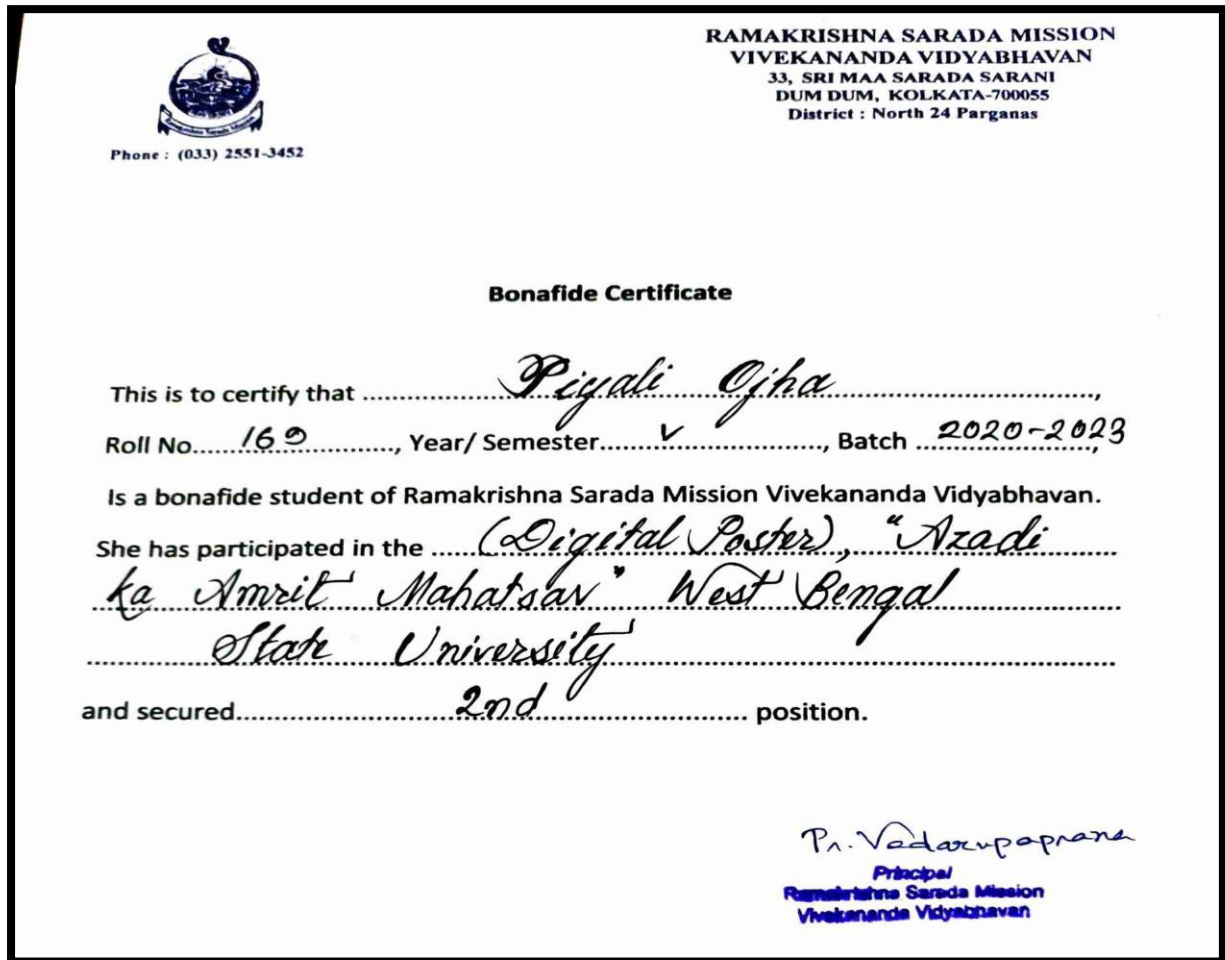 Ramakrishna Sarada Mission
Phone : (033) 2551-3452
RAMAKRISHNA SARADA MISSION
VIVEKANANDA VIDYABHAVAN
33, SRI MAA SARADA SARANI
DUM DUM, KOLKATA-700055
District : North 24 Parganas
Bonafide Certificate
This is to certify that ........ Piyali Ojha ........,
Roll No....... 169 ........, Year/ Semester....... V ........, Batch ... 2020-2023,
Is a bonafide student of Ramakrishna Sarada Mission Vivekananda Vidyabhavan.
She has participated in the ...... (Digital Poster), "Azadi
ka Amrit Mahatsav" West Bengal
State University
and secured........ 2nd ........ position.
Pr. Vedarupaprana
Principal
Ramakrishna Sarada Mission
Vivekananda Vidyabhavan